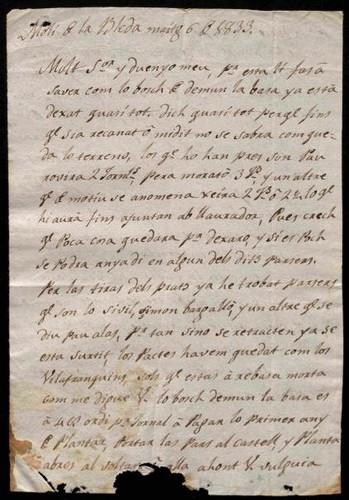 Molí de la Bleda maitg 6 de 1833.
Molt Sor. y duenyo meu, pr. esta li faré
saver com lo bosch de demun la basa ya està
dexat quasi tot. dich quasi tot perqe. fins
qe. sia recanat ó midit no se sabra com que-
da lo terreno, los qe. ho han pres son Pau
rovira 2 Jornls. Pera morató 3 Js. y un altre
qe. de motiu se anomena xeira 2 Js. ó 2½ lo qe.
hi aurá fins ajuntan ab llaurador, Pues crech
qe. Poca cosa quedara pr. dexaro, y si es Poch
se Podra anyadi en algun dels dits parsers.
Per las tiras dels prats ya he trobat parsers
qe. son lo sivil, simon barpalló, y un altre qe. se
diu pau alas, Pr. tan sino se retracten ya se
esta surtit, los Pactes havem quedat com los
Vilafranquins, sols qe. estas á rebasa morta
com me digue V. lo bosch demun la basa es
à 4 ordi pr. Jornal à Pagar lo primer any
de Plantar, Portar las Pars al Castell, y Planta
abres al ahont V. vulguia